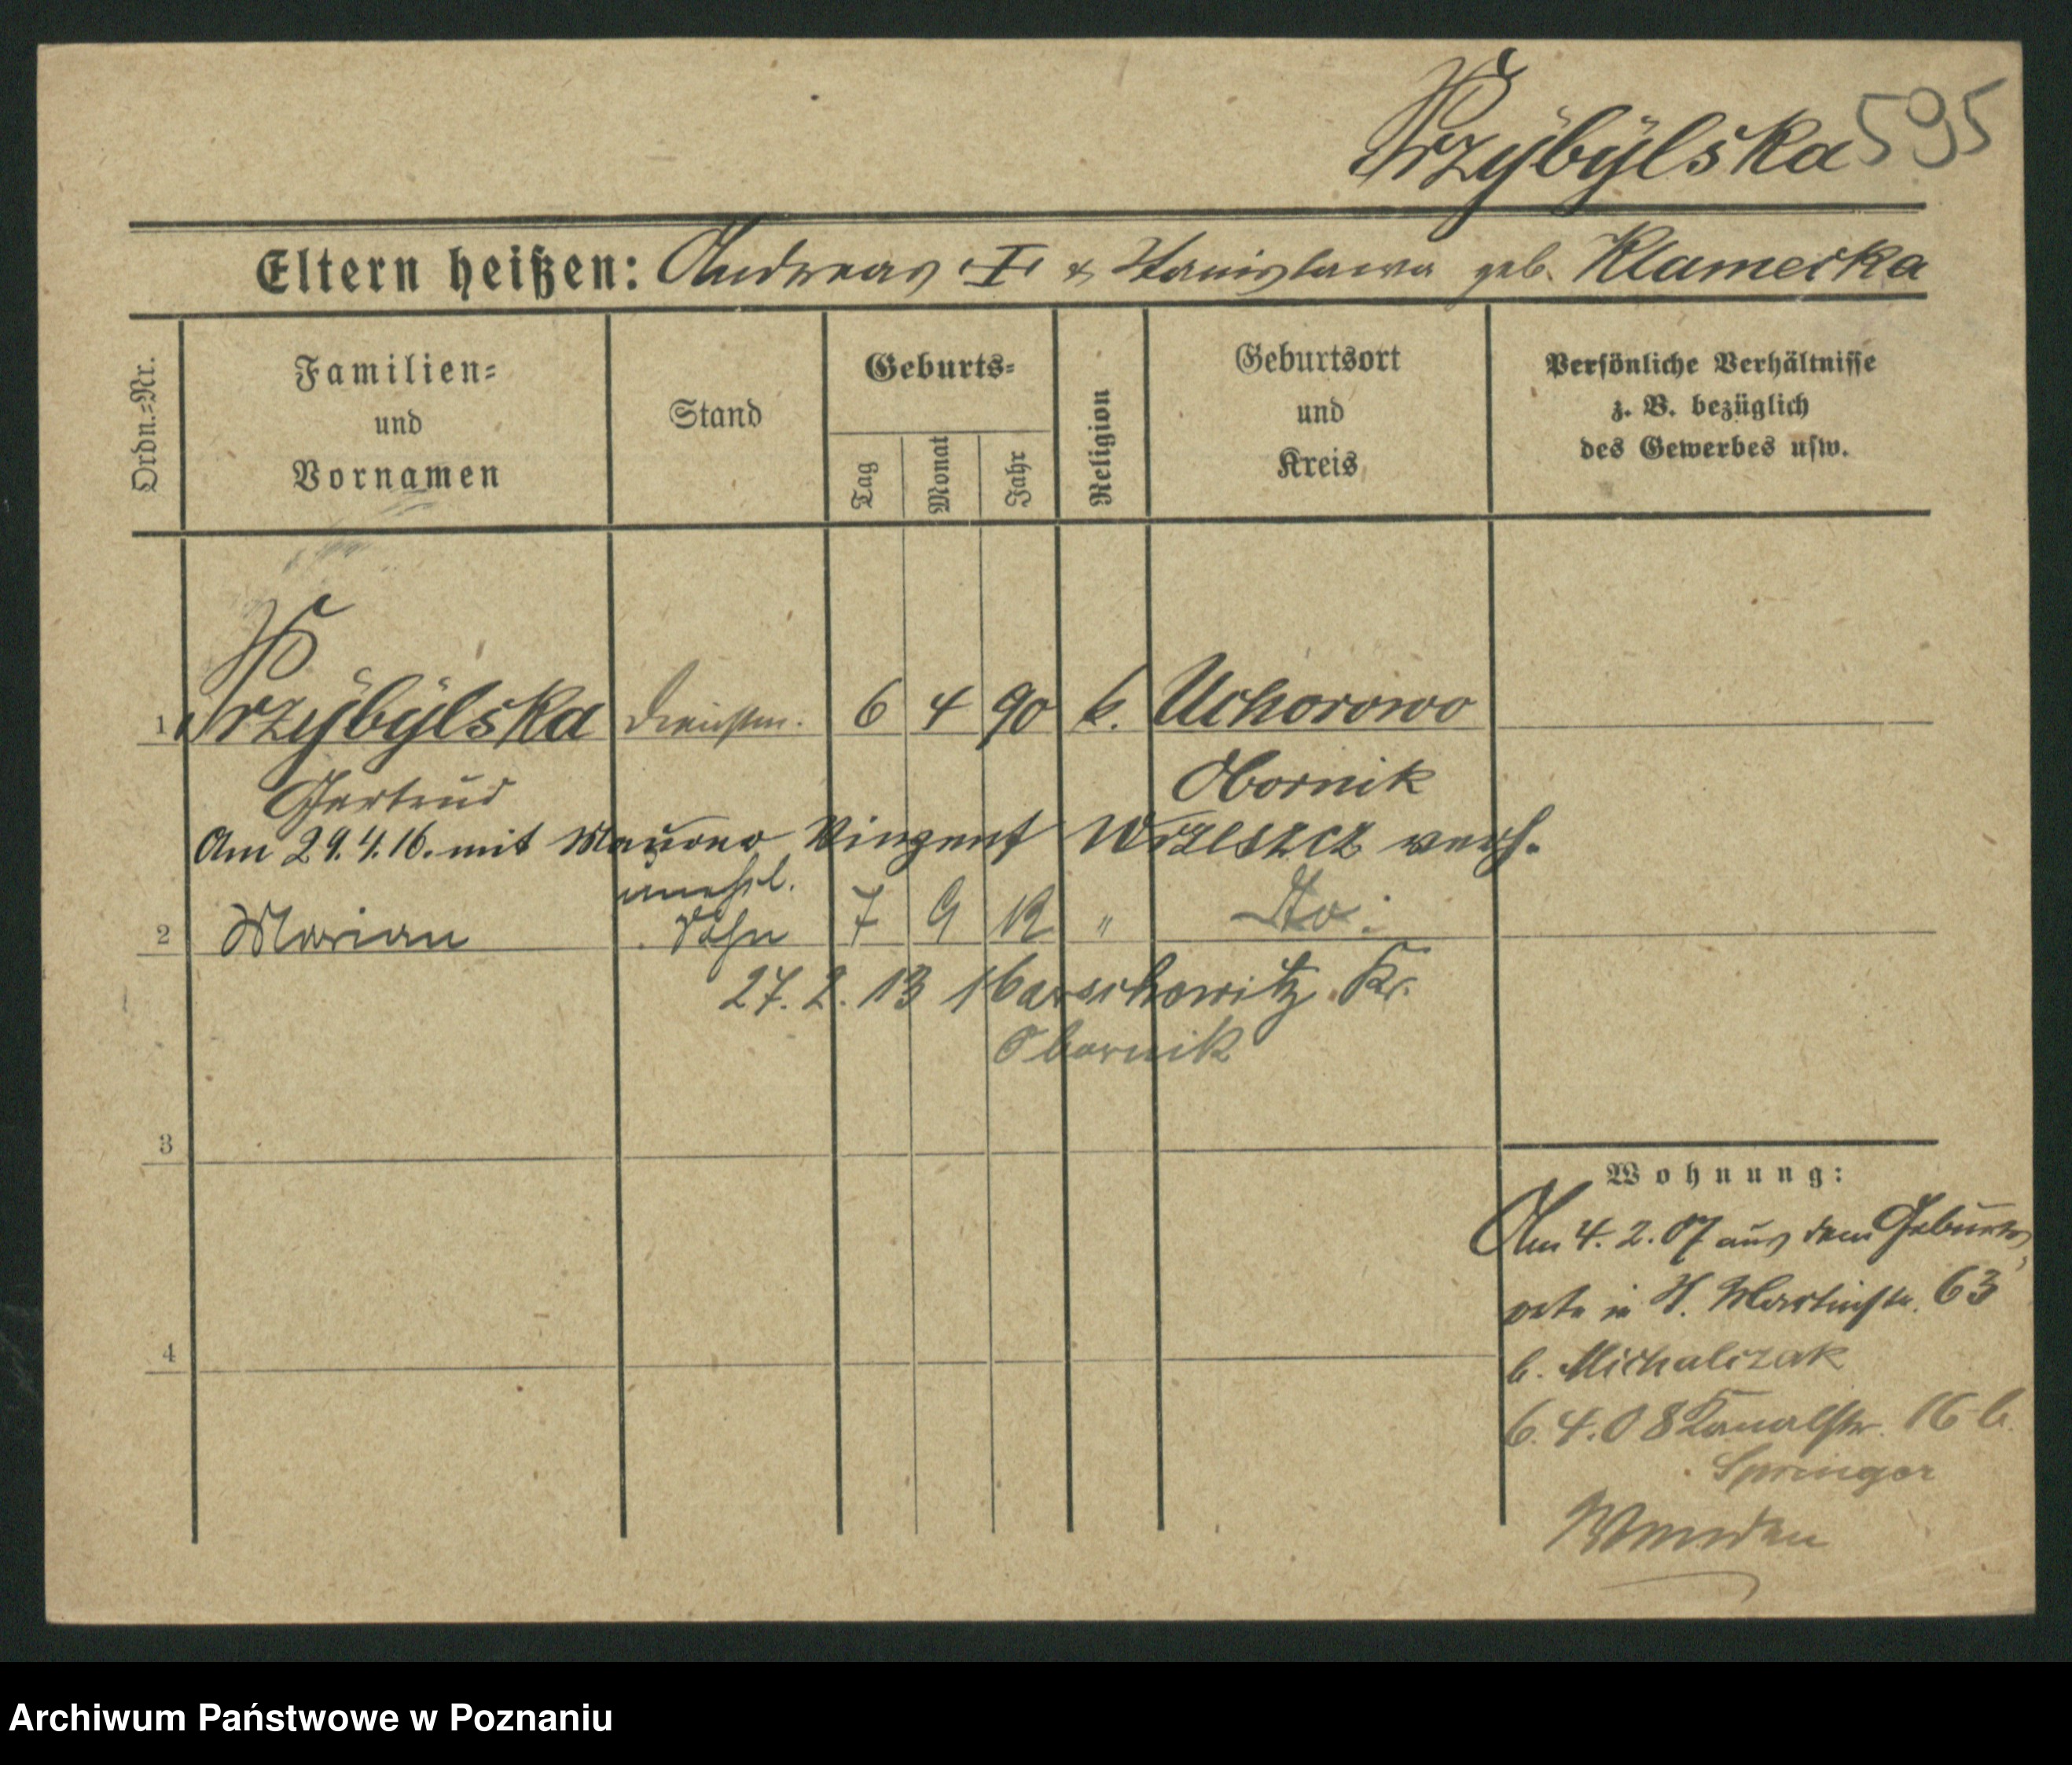 Przÿbÿlska 595
Eltern heißen: Andreas I & Stanislawa geb. Klamecka
Ordn.=Nr.
Familien=
und
Vornamen
Stand
Geburts=
Tag
Monat
Jahr
Religion
Geburtsort
und
Kreis
Persönliche Verhältnisse
z. B. bezüglich
des Gewerbes usw.
1 Przÿbÿlska Dienstm. 6 4 90 k. Uchorowo
Gertrud Obornik
Am 29.4.16. mit Maurer Vinzent Wrzeszcz verh.
unehel.
2 Marian Sohn 7 9 12 " Do.
27. 2. 13 Obornik
3
4
Wohnung:
Am 4. 2. 07 aus dem Geburts
orte in St. Martinstr. 63
b. Michalczak
6. 4. 08 Kanalstr. 16 b.
Springer
Wenden
Archiwum Państwowe w Poznaniu